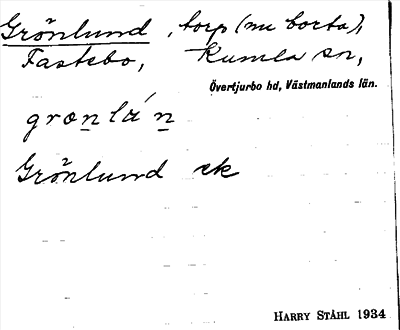 Grönlund, torp (nu borta),
Fastebo, Kumla sn,
Övertjurbo hd, Västmanlands län.
grœnlán
Grönlund ek
HARRY STÅHL 1934